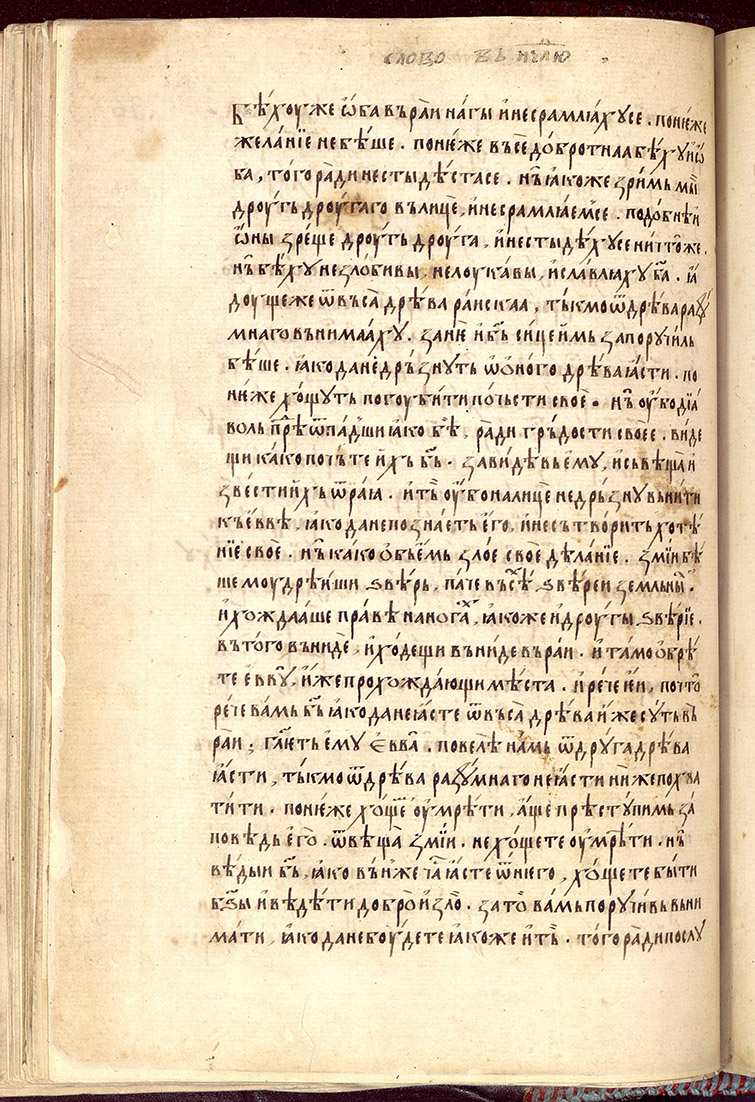 слово въ нⷣелю
Бѣхоу же ѡба въ раи нагы и не срамлꙗхꙋ се. понѥже
желанїе не бѣше. понѥже въсе добротнаа бѣхꙋ и ѡ
ба, того ради не стыдѣста се. нь̏ ꙗкоже зримь мы̏
дроугь дроугаго въ лице, и не срамлꙗем се. подобнѣ и
ѡны зреще дроугь дроуга, и не стыдѣхꙋ се ничтоже.
нь̏ бѣхꙋ незлобивы, нелоукавы, и славлꙗхꙋ б҃а. ꙗ
доуще же ѿ въса дрѣва раискаа, тькмо ѿ дрѣва разꙋ
мнаго вънимаахꙋ. занѥ и б҃ь сице имь запоручиль
бѣше. ꙗко да не дрьзнуть ѿ оного дрѣва ꙗсти. по
нѥже хощуть погоубити почьсти своѥ. нь̏ оубо дїа
воль прѣѿпадши ꙗко бѣ, ради грьдости своее. виде
щи како почьте ихь б҃ь. завидѣвь ѥму, и съвѣща и
звести ихь ѿ раꙗ. и тъ̏ оубо на лице не дрьзну вънити
къ еввѣ, ꙗко да не познаѥть ѥго, и не сътворить хотѣ
нїе своѥ. нь̏ како обьѥмь злое своѥ дѣланїе. змїи бѣ
ше моудрѣиши ѕвѣрь, паче въсѣⷯ ѕвѣреи земльныⷯ.
и хождааше правѣ на ногаⷯ, ꙗкоже и дроугы ѕвѣрїе.
въ того въниде, и ходещи въниде въ раи. и тамо обрѣ
те еввꙋ, иже прохождающи мѣста. и рече ѥи, почто
рече вамь б҃ь ꙗко да не ꙗсте ѿ въса дрѣва иже сꙋть въ
раи; гл҃ѥть ѥму Евва. повелѣ намь ѿ друга дрѣва
ꙗсти, тькмо ѿ дрѣва разꙋмнаго не ꙗсти ниже похва
тити. понѥже хощеⷨ оумрѣти, аще прѣступимь за
повѣдь ѥго. ѿвѣща змїи. не хощете оумрѣти. нь̏
вѣдыи б҃ь, ꙗко вьниже ꙗсте ѿ нѥго, хощете быти
б҃ѕы и вѣдѣти добро и зло. за то вамь поручивь въни
мати, ꙗко да не боудете ꙗкоже и тъ̏. того ради послꙋ